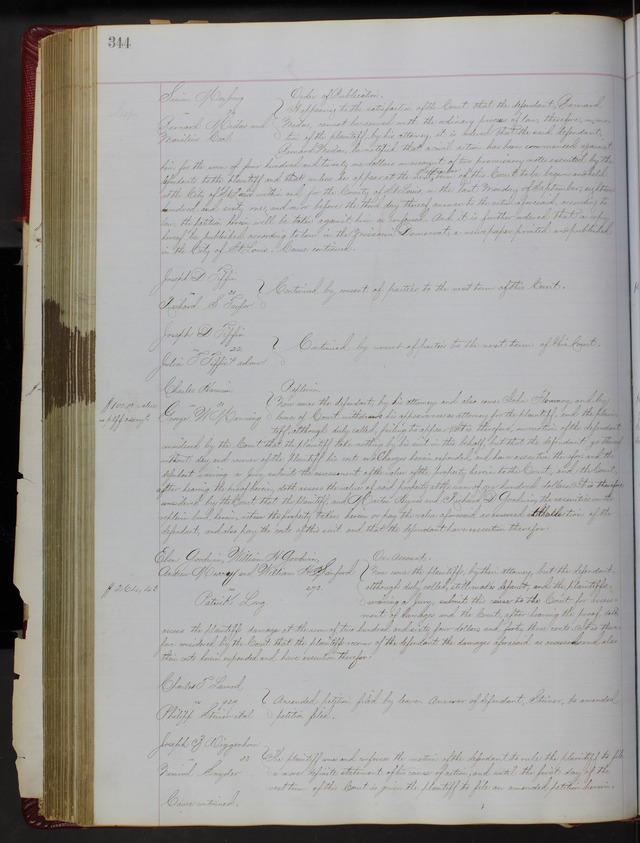 344
Order of Publication.
vs
It appearing to the satisfaction of the Court that the defendant, Bernard
cannot be served with the ordinary process of law, therefore, on mo-
tion of the plaintiff by his attorney, it is ordered that the said defendant,
Bernard be notified that a civil action has been commenced against
him for the sum of four hundred and twenty dollars on account of two promissory notes executed by the
defendants to the plaintiff and that unless he appear at the next term of this Court to be begun and held
at the City of St Louis within and for the County of St Louis on the first Monday of September, eighteen
hundred and sixty one, and on or before the third day thereof answer to the action aforesaid, according to
law, the petition herein will be taken against him as confessed. And it is further ordered, that a copy
hereof be published according to law in the Missouri Democrat, a newspaper printed and published
in the City of St Louis. Cause continued.
Joseph D. Tiffin
vs
Continued by consent of parties to the next term of this Court.
Joseph D. Tiffin
vs
Julia F. Tiffin et al
Continued by consent of parties to the next term of this Court.
Charles
Replevin
vs
George W. Manning
Now comes the defendant, by his attorney and also comes John and by
leave of Court withdraws his appearance as attorney for the plaintiff, and the plain-
tiff, although duly called, fails to appear. It is therefore, on motion of the defendant
considered by the Court that the plaintiff take nothing by his suit in this behalf, but that the defendant go thereof
without day and recover of the Plaintiff his costs and Charges herein expended, and have execution therefor; and the
defendant waiving a jury submits the assessment of the value of the property herein to the Court, and the Court,
after hearing the proof herein, doth assess the value of said property at the sum of one hundred dollars. It is therefore
considered by the Court that the plaintiff, and Martin and D. the securities on the
replevin bond herein, return the property taken herein or pay the value aforesaid so assessed at the election of the
defendant, and also pay the costs of this suit and that the defendant have execution therefor.
Eben Goodwin, William H. Goodwin,
On account.
Andrew Murray and William Sanford
vs
Patrick Long
Now come the plaintiffs, by their attorney, but the defendant
although duly called, still makes default, and the plaintiffs,
waiving a Jury, submit this cause to the Court for assess-
ment of damages and the Court, after hearing the proof doth
assess the plaintiffs damages at the sum of two hundred and sixty four dollars and forty three cents. It is there-
fore considered by the Court that the plaintiffs recover of the defendant the damages aforesaid so assessed and also
their costs herein expended and have execution therefor.
Charles T.
vs
Philipp Steiner et al
Amended petition filed by leave. Answer of defendant, Steiner, to amended
petition filed.
Joseph F.
vs
Snyder
The plaintiff comes and confesses the motion of the defendant to rule the plaintiff to file
a more definite statement of his cause of action, and until the first day of the
next term of this Court is given the plaintiff to file an amended petition herein.
Cause continued.